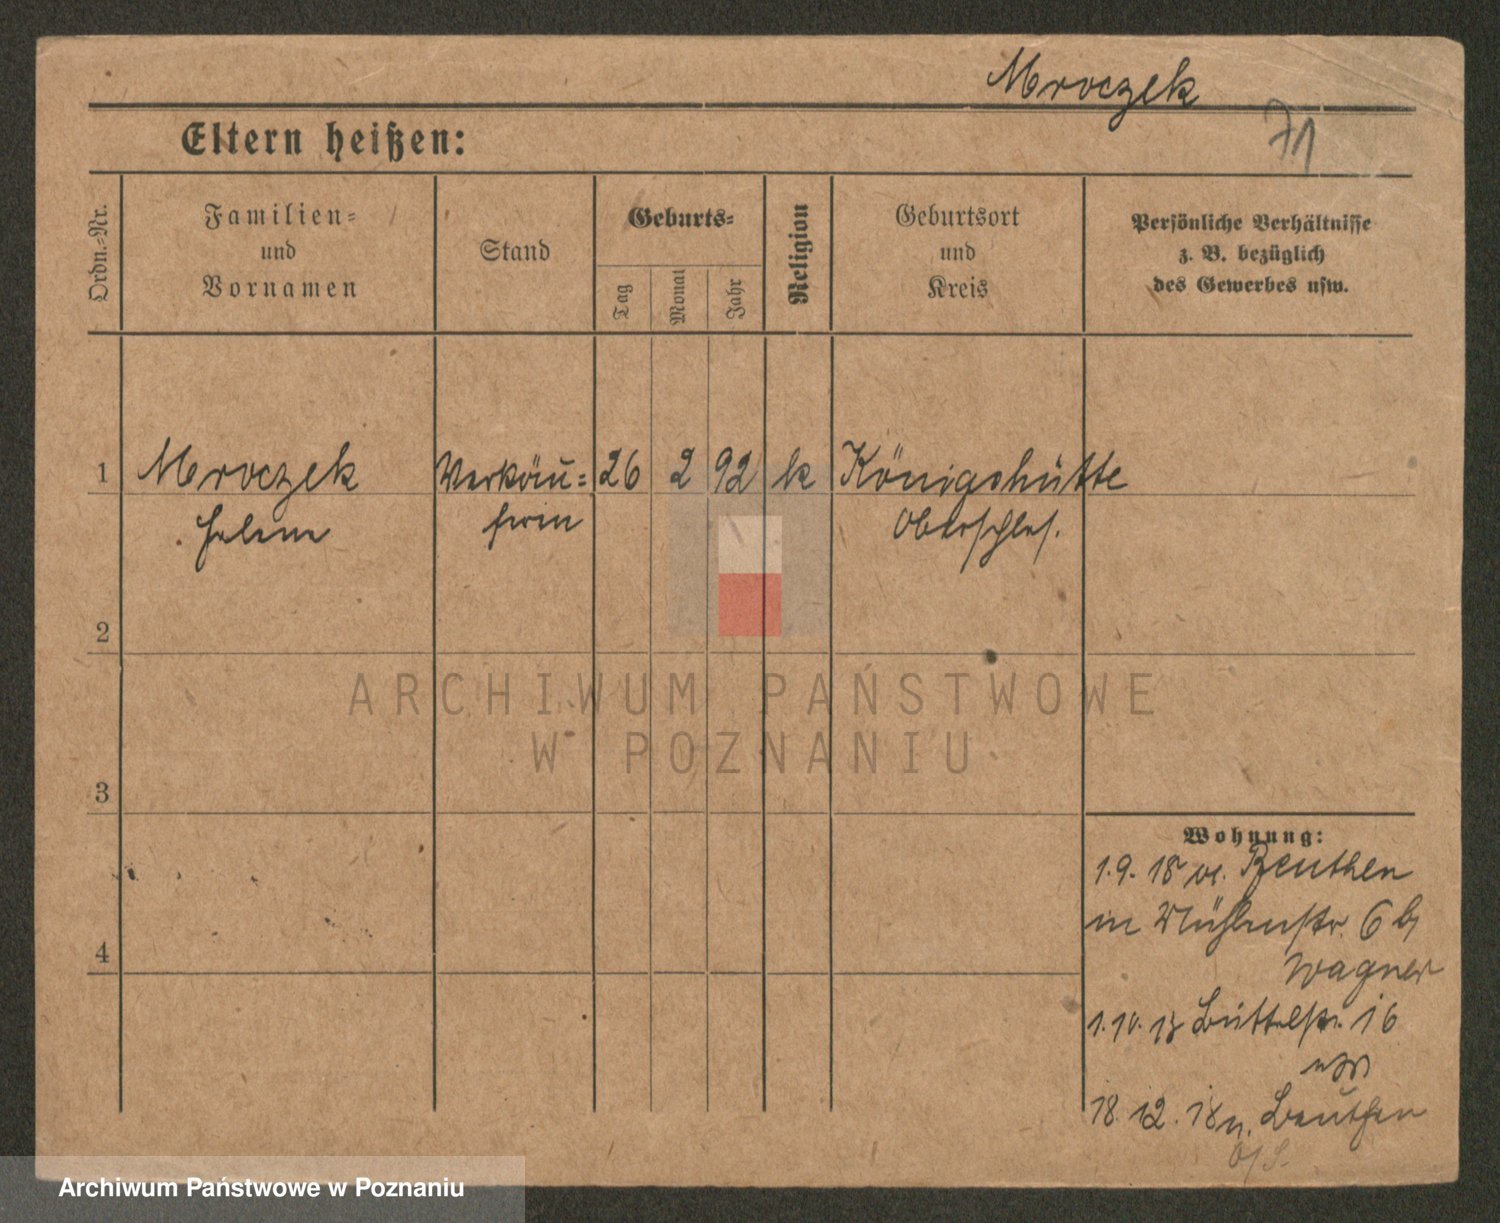 Mroczek
71
Eltern heißen:
Ordn.-Nr.
Familien-
und
Vornamen
Stand
Geburts-
Tag
Monat
Jahr
Religion
Geburtsort
und
Kreis
Persönliche Verhältnisse
z. B. bezüglich
des Gewerbes usw.
1 Mroczek Verkäu- 26 2 92 k Königshütte
Helene ferin Oberschles.
2
3
4
Wohnung:
1.9.18 v. Beuthen
in Mühlenstr. 6 b/
Wagner
1.10.18 Büttelstr. 16
18.12.18 n. Beuthen
O/S.
ARCHIWUM PAŃSTWOWE
W POZNANIU
Archiwum Państwowe w Poznaniu